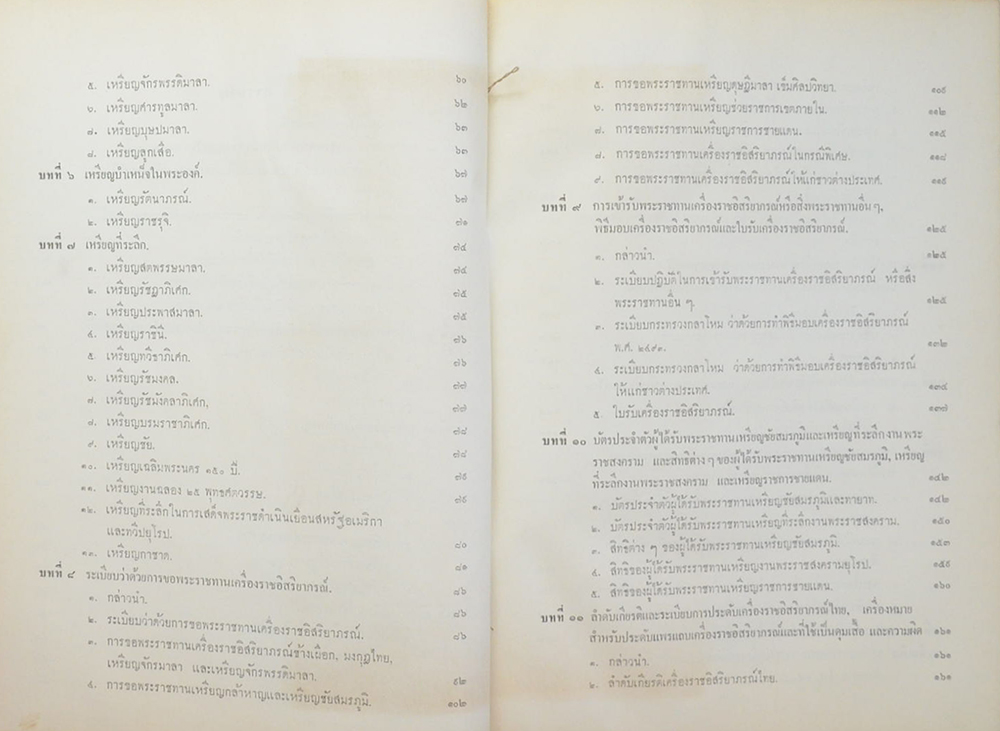 ๕. เหรียญจักรพรรดิมาลา. ๖๐
๖. เหรียญศารทูลมาลา. ๖๒
๗. เหรียญบุษปมาลา. ๖๓
๘. เหรียญลูกเสือ. ๖๓
บทที่ ๖ เหรียญบำเหน็จในพระองค์. ๖๗
๑. เหรียญรัตนาภรณ์. ๖๗
๒. เหรียญราชรุจิ. ๗๑
บทที่ ๗ เหรียญที่ระลึก. ๗๔
๑. เหรียญสตพรรษมาลา. ๗๔
๒. เหรียญรัชฎาภิเศก. ๗๕
๓. เหรียญประพาสมาลา. ๗๕
๔. เหรียญราชินี. ๗๖
๕. เหรียญทวีธาภิเศก. ๗๖
๖. เหรียญรัชมงคล. ๗๗
๗. เหรียญรัชมังคลาภิเศก, ๗๗
๘. เหรียญบรมราชาภิเศก. ๗๘
๙. เหรียญชัย. ๗๘
๑๐. เหรียญเฉลิมพระนคร ๑๕๐ ปี. ๗๙
๑๑. เหรียญงานฉลอง ๒๕ พุทธศตวรรษ. ๗๙
๑๒. เหรียญที่ระลึกในการเสด็จพระราชดำเนินเยือนสหรัฐอเมริกา
และทวีปยุโรป. ๘๐
๑๓. เหรียญกาชาด. ๘๑
บทที่ ๘ ระเบียบว่าด้วยการขอพระราชทานเครื่องราชอิสริยาภรณ์. ๘๖
๑. กล่าวนำ. ๘๖
๒. ระเบียบว่าด้วยการขอพระราชทานเครื่องราชอิสริยาภรณ์. ๘๖
๓. การขอพระราชทานเครื่องราชอิสริยาภรณ์ช้างเผือก, มงกุฎไทย,
เหรียญจักรมาลา และเหรียญจักรพรรดิมาลา. ๙๒
๔. การขอพระราชทานเหรียญกล้าหาญและเหรียญชัยสมรภูมิ. ๑๐๒
๕. การขอพระราชทานเหรียญดุษฎีมาลา เข็มศิลปวิทยา. ๑๐๙
๖. การขอพระราชทานเหรียญช่วยราชการเขตภายใน. ๑๑๒
๗. การขอพระราชทานเหรียญราชการชายแดน. ๑๑๕
๘. การขอพระราชทานเครื่องราชอิสริยาภรณ์ในกรณีพิเศษ. ๑๑๘
๙. การขอพระราชทานเครื่องราชอิสริยาภรณ์ให้แก่ชาวต่างประเทศ. ๑๑๙
บทที่ ๙ การเข้ารับพระราชทานเครื่องราชอิสริยาภรณ์หรือสิ่งพระราชทานอื่น ๆ,
พิธีมอบเครื่องราชอิสริยาภรณ์และใบรับเครื่องราชอิสริยาภรณ์. ๑๒๕
๑. กล่าวนำ. ๑๒๕
๒. ระเบียบปฏิบัติในการเข้ารับพระราชทานเครื่องราชอิสริยาภรณ์ หรือสิ่ง
พระราชทานอื่น ๆ. ๑๒๕
๓. ระเบียบกระทรวงกลาโหม ว่าด้วยการทำพิธีมอบเครื่องราชอิสริยาภรณ์
พ.ศ. ๒๔๙๓. ๑๓๒
๔. ระเบียบกระทรวงกลาโหม ว่าด้วยการทำพิธีมอบเครื่องราชอิสริยาภรณ์
ให้แก่ชาวต่างประเทศ. ๑๓๔
๕. ใบรับเครื่องราชอิสริยาภรณ์. ๑๓๗
บทที่ ๑๐ บัตรประจำตัวผู้ได้รับพระราชทานเหรียญชัยสมรภูมิและเหรียญที่ระลึก งาน พระ
ราชสงคราม และสิทธิต่าง ๆ ของผู้ได้รับพระราชทานเหรียญชัยสมรภูมิ, เหรียญ
ที่ระลึกงานพระราชสงคราม และเหรียญราชการชายแดน. ๑๔๒
๑. บัตรประจำตัวผู้ได้รับพระราชทานเหรียญชัยสมรภูมิและทายาท. ๑๔๒
๒. บัตรประจำตัวผู้ได้รับพระราชทานเหรียญที่ระลึกงานพระราชสงคราม. ๑๕๐
๓. สิทธิต่าง ๆ ของผู้ได้รับพระราชทานเหรียญชัยสมรภูมิ. ๑๕๓
๔. สิทธิของผู้ได้รับพระราชทานเหรียญงานพระราชสงครามยุโรป. ๑๕๙
๕. สิทธิของผู้ได้รับพระราชทานเหรียญราชการชายแดน. ๑๖๐
บทที่ ๑๑ ลำดับเกียรติและระเบียบการประดับเครื่องราชอิสริยาภรณ์ไทย, เครื่องหมาย
สำหรับประดับแพรแถบเครื่องราชอิสริยาภรณ์และที่ใช้เป็นดุมเสื้อ และความผิด ๑๖๑
๑. กล่าวนำ. ๑๖๑
๒. ลำดับเกียรติเครื่องราชอิสริยาภรณ์ไทย. ๑๖๑